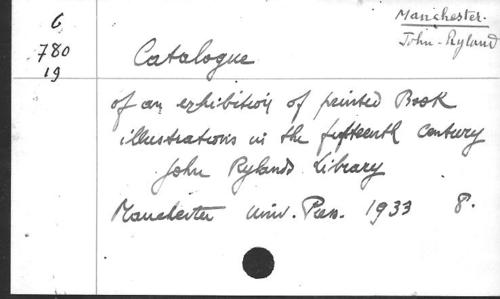 6
780
19
Manchester.
John-Ryland
Catalogue
of an exhibition of printed Book
illustrations in the fifteenth Century
John Rylands Library
Manchester Univ. Press. 1933 8.